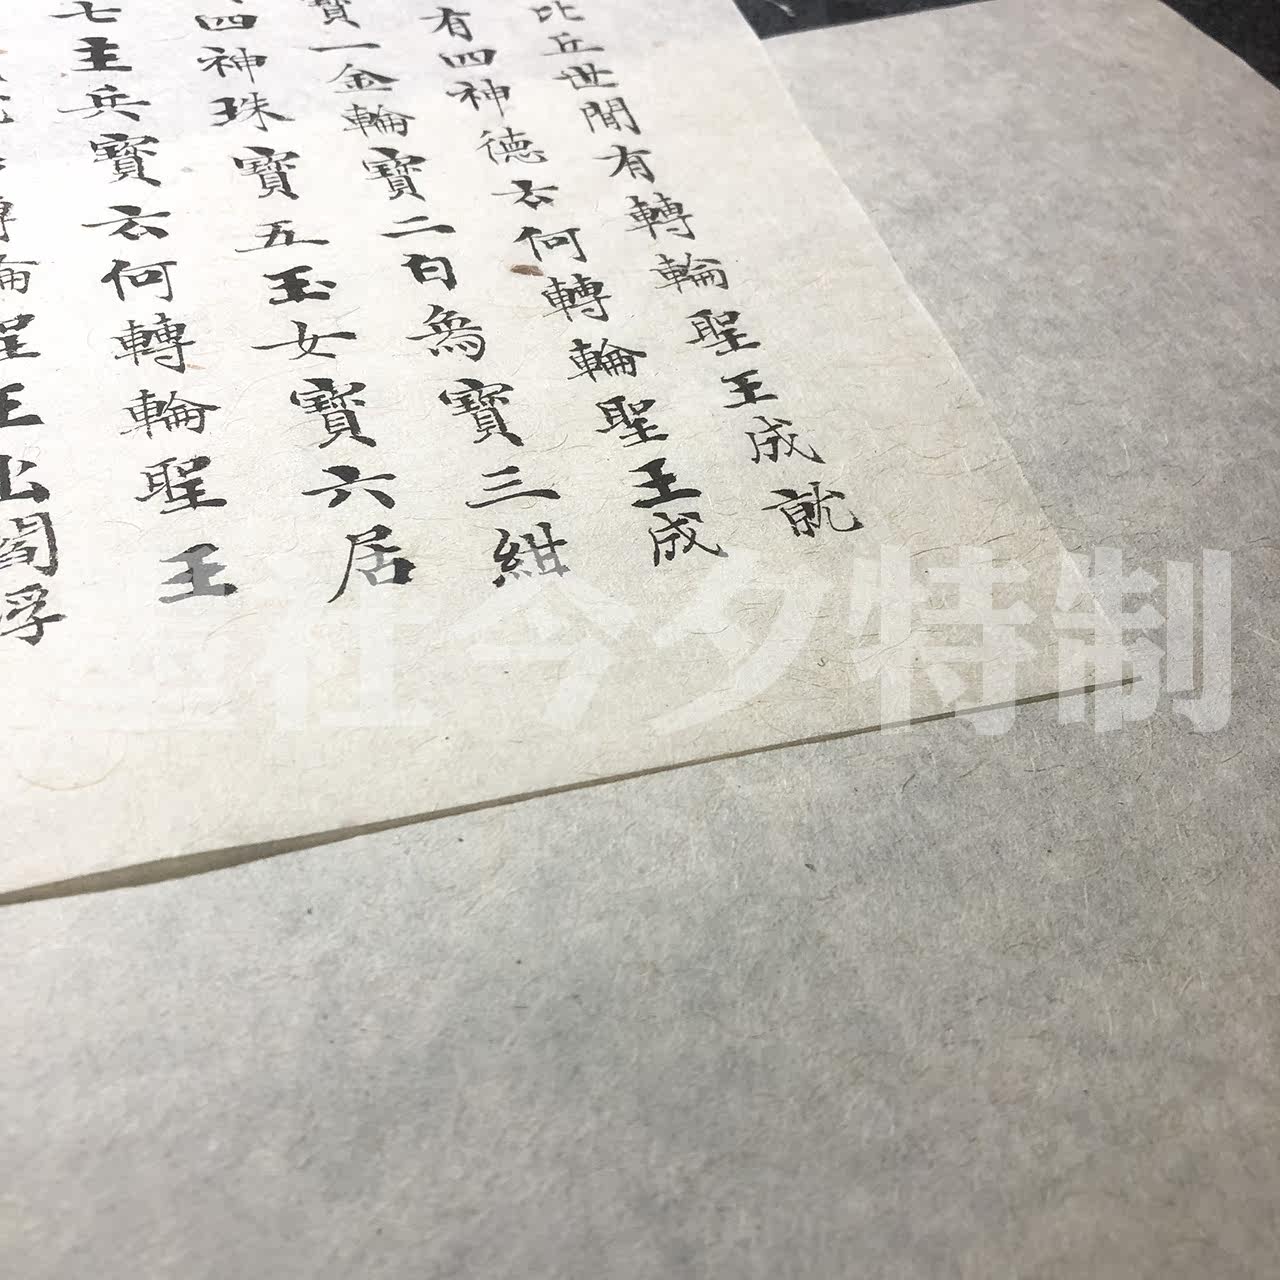 比丘世間有轉輪聖王成就
有四神德云何轉輪聖王成
寶一金輪寶二白為寶三紺
四神珠寶五玉女寶六居
七主兵寶云何轉輪聖王
轉輪聖王出閻浮
社今夕特制